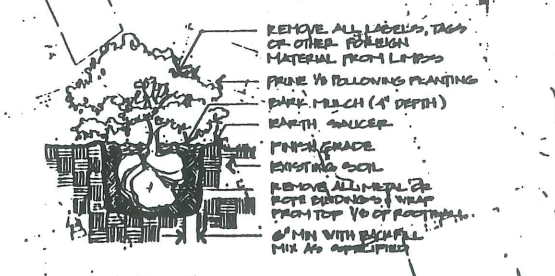 REMOVE ALL LABELS, TAGS
OR OTHER FOREIGN
MATERIAL FROM LIMBS
PRUNE 1/3 FOLLOWING PLANTING
BARK MULCH (4" DEPTH)
EARTH SAUCER
FINISH GRADE
EXISTING SOIL
REMOVE ALL METAL OR
ROPE BINDINGS & WRAP
FROM TOP 1/3 OF ROOTBALL.
6" MIN WITH BACKFILL
MIX AS SPECIFIED